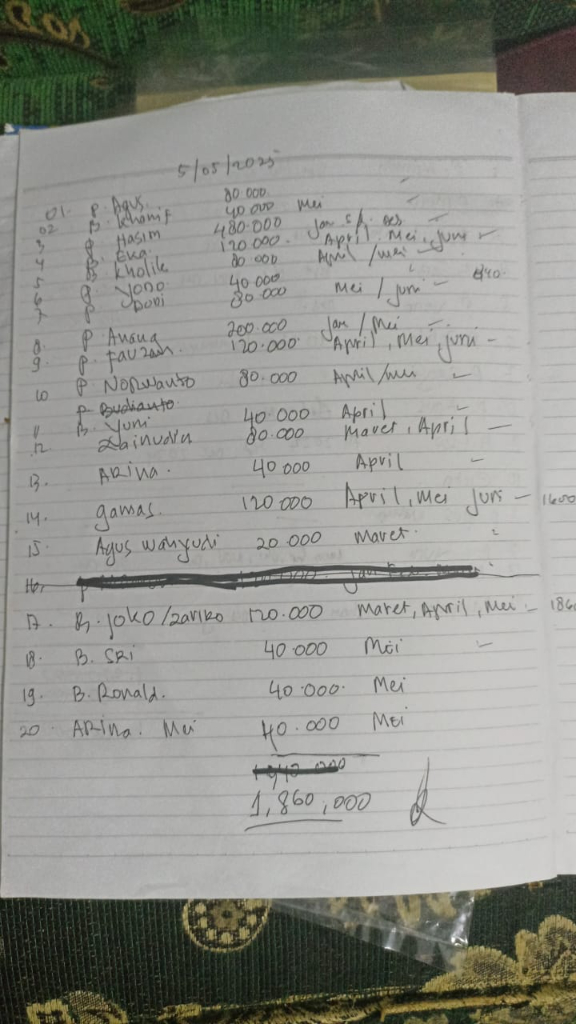 5/05/2025
01. P. Agus 80.000
02 B. Khanif 40.000 Mei
3 P Hasim 480.000 Jan s/d Des
4 P Eka 120.000 April, Mei, Juni -
5 B. Kholik 80.000 April /mei -
6 P. Yono 40.000 840
7 P Doni 80.000 Mei / Juni -
8. P. Anang 200.000 Jan / Mei -
9. P. Fauzan. 120.000. April, Mei, Juni -
10 P Nopwanto 80.000 April/mei -
P Budianto
11 B. Yuni 40.000 April -
12. Zainudin 80.000 Maret, April -
13. ARina. 40.000 April -
14. gamas. 120.000 April, Mei Juni - 1600
15 Agus wahyudi 20.000 Maret.
16.
17. B. JOKO /zariko 120.000 Maret, April, Mei - 1860
18. B. SRI 40.000 Mei -
19. B. Ronald. 40.000. Mei
20 ARina. Mei 40.000 Mei
1,860,000